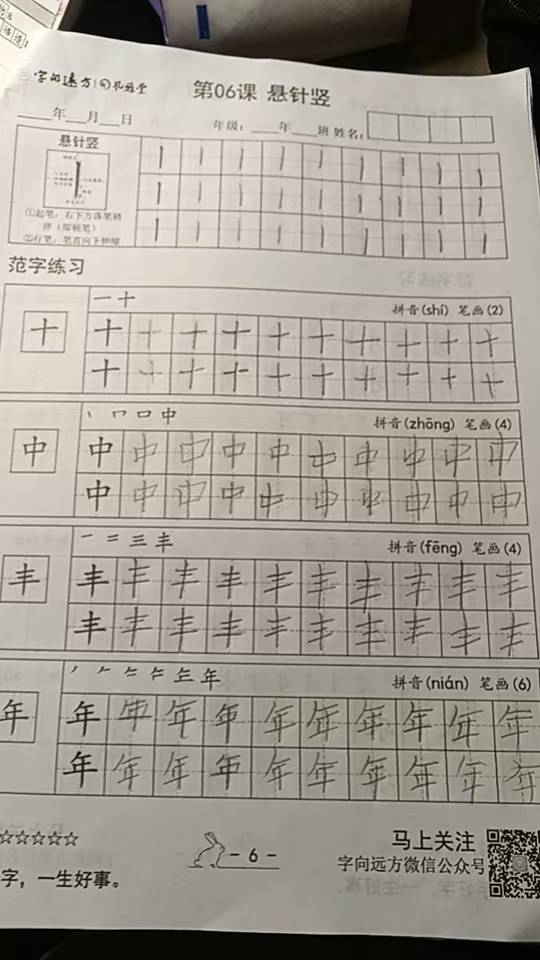 字向远方
第06课 悬针竖
年 月 日 年级: 年 班 姓名:
悬针竖
①起笔：右下方落笔稍
停（即顿笔）
②行笔：笔直向下伸缩
范字练习
一 十
拼音(shí) 笔画(2)
十 十 十 十 十 十 十 十 十 十 十
十 十 十 十 十 十 十 十 十 十
丨 口 口 中
拼音(zhōng) 笔画(4)
中 中 中 中 中 中 中 中 中 中 中
中 中 中 中 中 中 中 中 中 中
一 二 三 丰
拼音(fēng) 笔画(4)
丰 丰 丰 丰 丰 丰 丰 丰 丰 丰 丰
丰 丰 丰 丰 丰 丰 丰 丰 丰 丰
年
拼音(nián) 笔画(6)
年 年 年 年 年 年 年 年 年 年 年
年 年 年 年 年 年 年 年 年 年
☆☆☆☆☆
- 6 -
马上关注
字向远方微信公众号
字，一生好事。